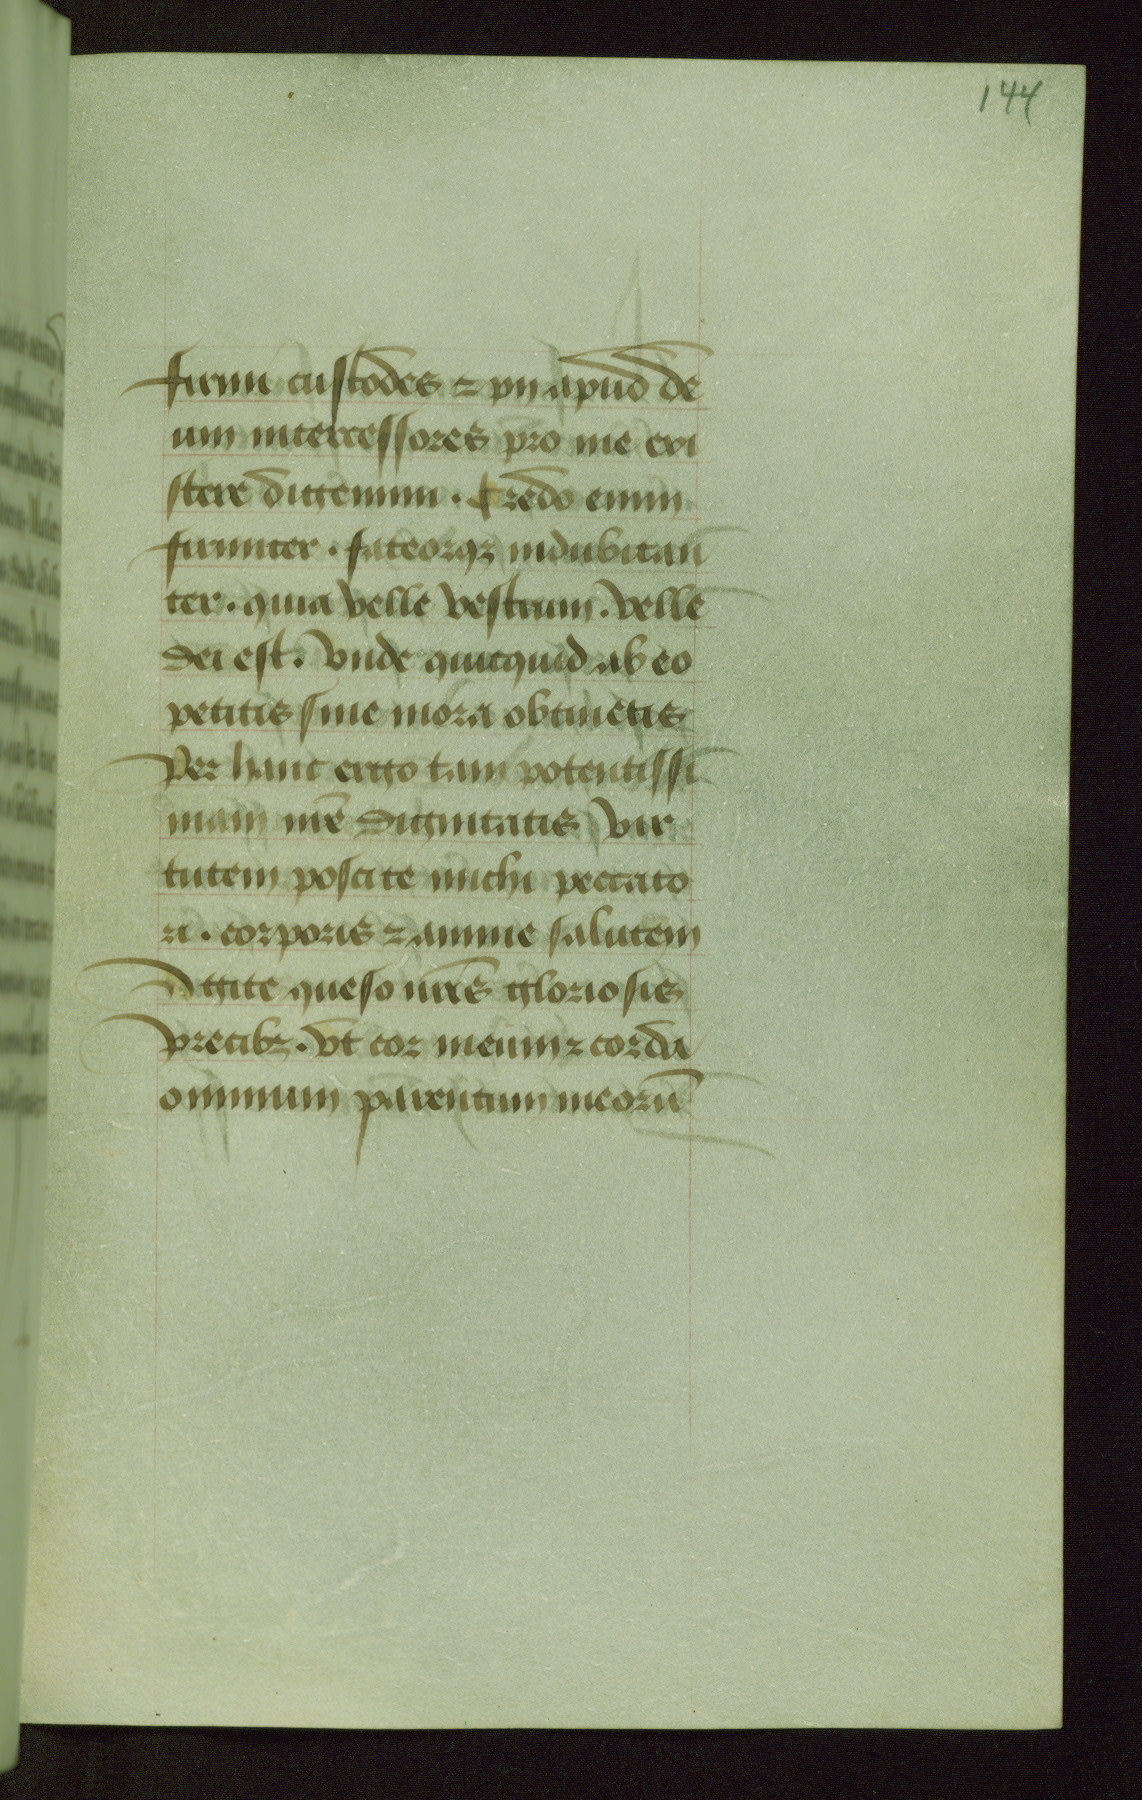 144
firmi custodes ⁊ pij apud de
um intercessores pro me exi
stere dignemini. Credo enim
firmiter. fateorqꝫ indubitan̄
ter. quia velle vestrum. velle
dei est. Vnde quicquid ab eo
petitis sine mora obtinetis
Per hanc ergo tam potentissi
mam vr̄e dignitatis vir
tutem poscite michi peccato
ri. corporis ⁊ anime salutem
Agite queso vr̄is gloriosis
precibꝫ. vt cor meum ⁊ corda
omnium parentum meorū